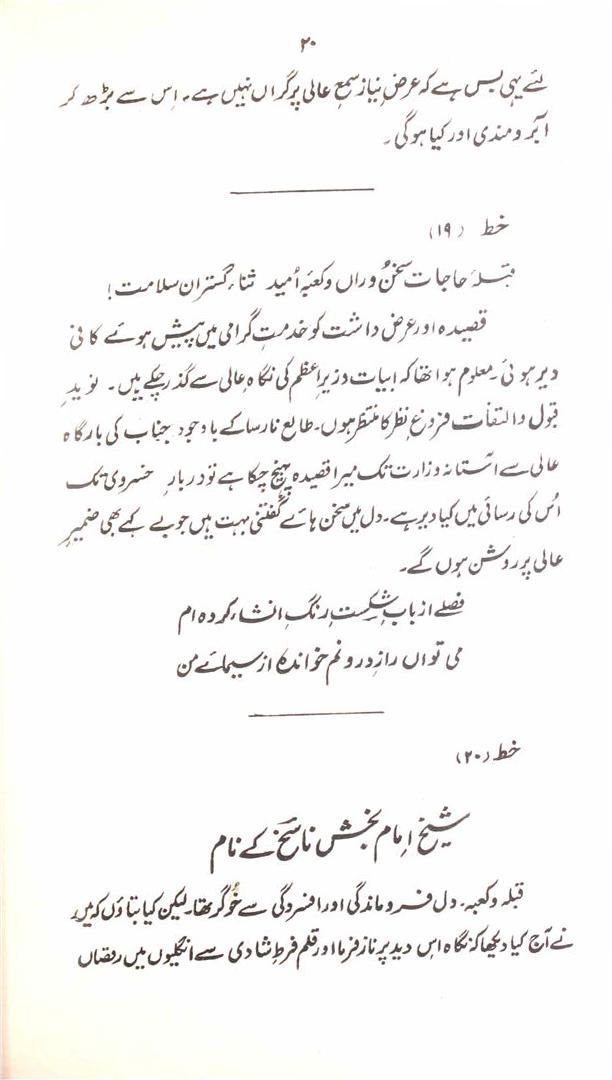 ۲۰
لئے یہی بس ہے کہ عرضِ نیاز سمعِ عالی پر گراں نہیں ہے۔ اس سے بڑھ کر
آبرو مندی اور کیا ہوگی۔
خط (۱۹)
قبلۂ حاجات سخن وراں و کعبۂ اُمید ثناء گستران سلامت!
قصیدہ اور عرض داشت کو خدمتِ گرامی میں پیش ہوئے کافی
دیر ہوئی۔ معلوم ہوا تھا کہ ابیات وزیرِ اعظم کی نگاہِ عالی سے گذر چکے ہیں۔ نویدِ
قبول و التفات فروغِ نظر کا منتظر ہوں۔ طالع نارسا کے باوجود جناب کی بارگاہ
عالی سے آستانہ وزارت تک میرا قصیدہ پہنچ چکا ہے تو دربارِ خسروی تک
اُس کی رسائی میں کیا دیر ہے۔ دل میں سخن ہائے گفتنی بہت ہیں جو بے کہے بھی ضمیرِ
عالی پر روشن ہوں گے۔
فصلے از بابِ شکستِ رنگ انشاء کردہ ام
می تواں رازِ درونم خواند از سیمائے من
خط (۲۰)
شیخ امام بخش ناسخ کے نام
قبلہ و کعبہ۔ دل فروماندگی اور افسردگی سے خُوگر تھا۔ لیکن کیا بتاؤں کہ میں
نے آج کیا دیکھا کہ نگاہ اس دید پر ناز فرما اور قلم فرطِ شادی سے انگلیوں میں رقصاں